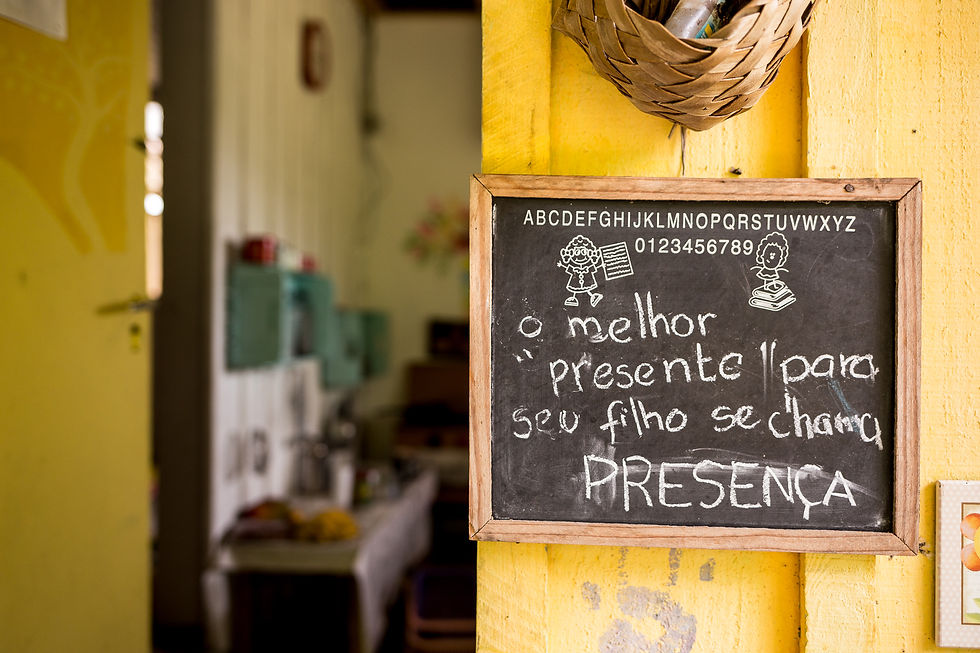 ABCDEFGHIJKLMNOPQRSTUVWXYZ
0123456789
o melhor
"presente" para
seu filho se chama
PRESENÇA